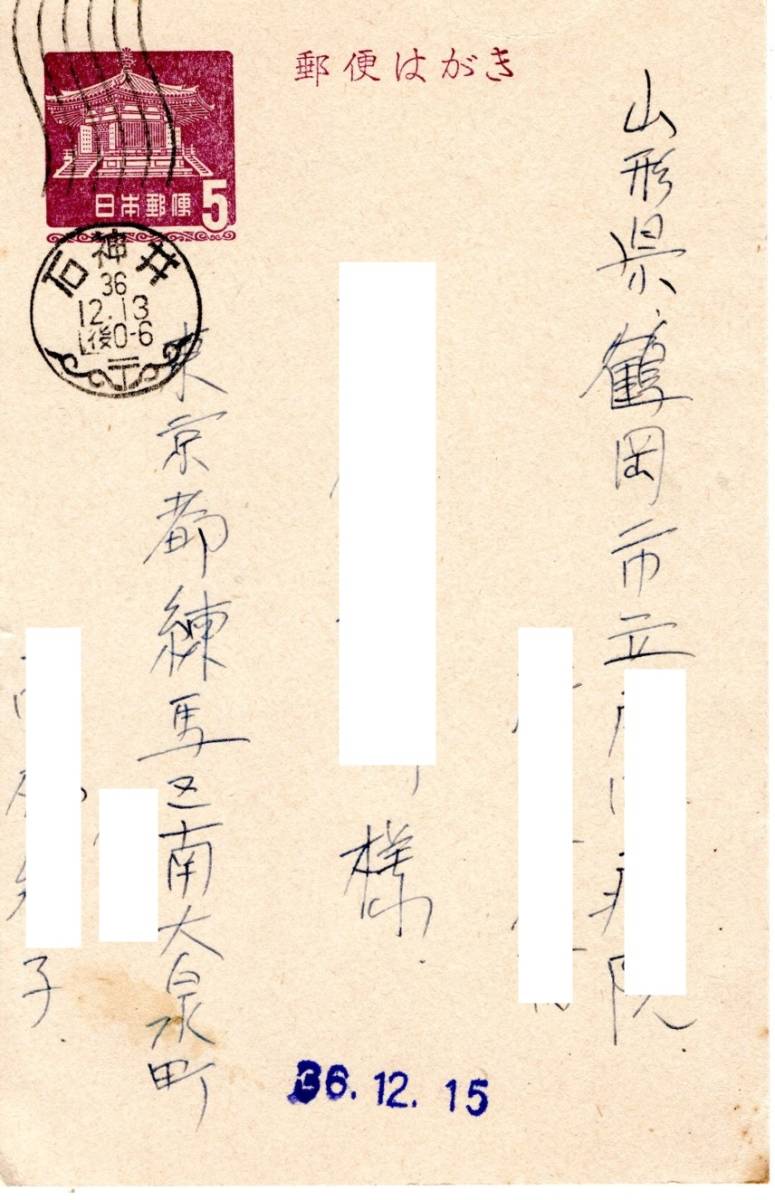 郵便はがき
日本郵便
5
石神井
36
12.13
後0-6
山形県鶴岡市立病院
様
東京都練馬区南大泉町
子
36.12.15